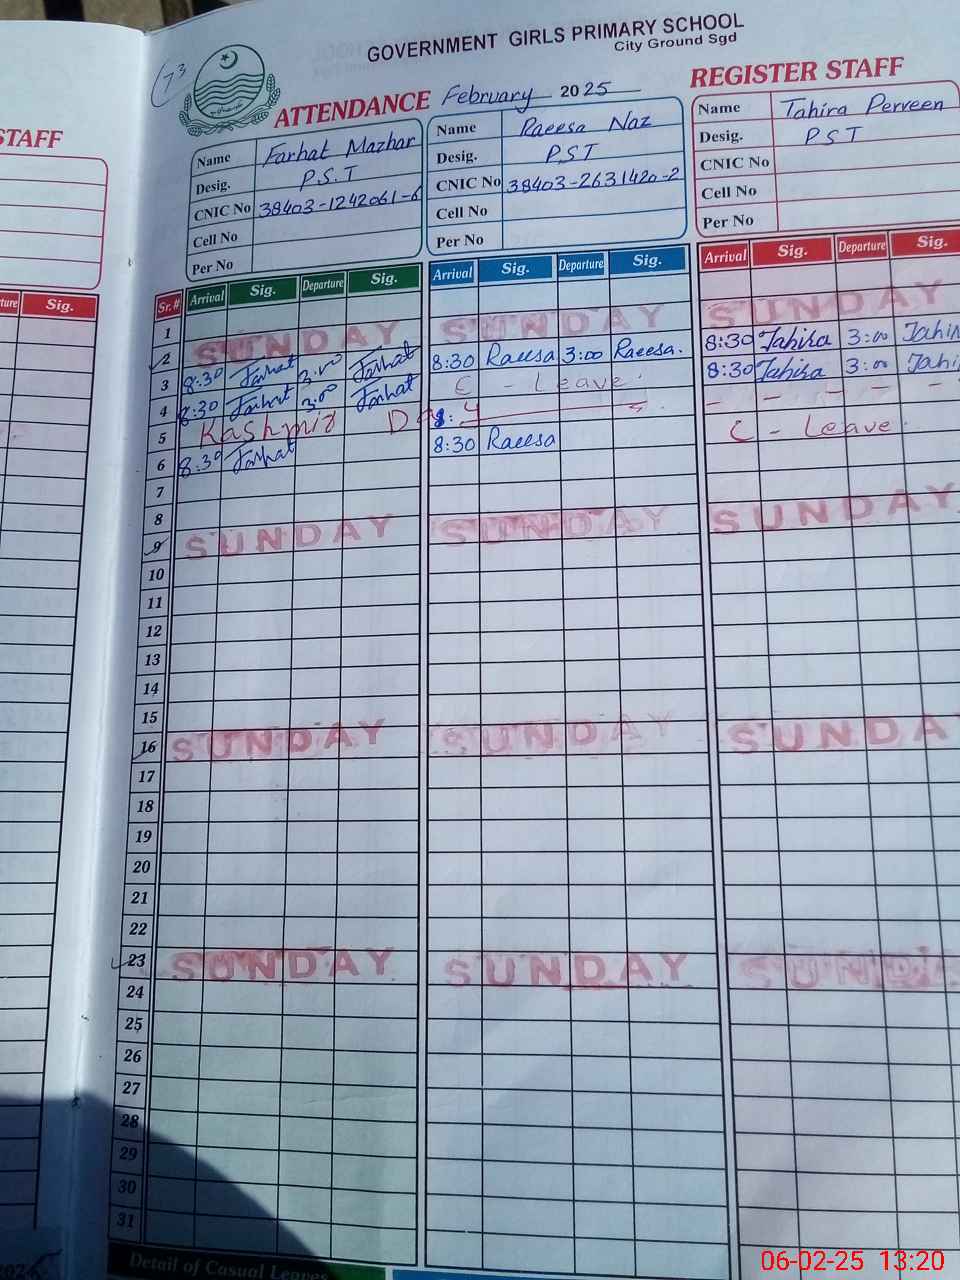 73
GOVERNMENT GIRLS PRIMARY SCHOOL
City Ground Sgd
STAFF
ATTENDANCE February 2025 REGISTER STAFF
Name Farhat Mazhar
Desig. P.S.T
CNIC No 38403-1242061-6
Cell No
Per No
Name Raeesa Naz
Desig. PST
CNIC No 38403-2631420-2
Cell No
Per No
Name Tahira Perveen
Desig. PST
CNIC No
Cell No
Per No
Sig.
Sr.# Arrival Sig. Departure Sig. Arrival Sig. Departure Sig. Arrival Sig. Departure Sig.
1
2 SUNDAY SUNDAY SUNDAY
3 8:30 Farhat 3:00 Farhat 8:30 Raeesa 3:00 Raeesa. 8:30 Tahira 3:00 Tahir
4 8:30 Farhat 3:00 Farhat C - Leave. 8:30 Tahira 3:00 Tahi
5 Kashmir Day - - - - - -
6 8:30 Farhat 8:30 Raeesa C - Leave.
7
8
9 SUNDAY SUNDAY SUNDAY
10
11
12
13
14
15
16 SUNDAY SUNDAY SUNDA
17
18
19
20
21
22
23 SUNDAY SUNDAY SUNDA
24
25
26
27
28
29
30
31
Detail of Casual Leaves
06-02-25 13:20